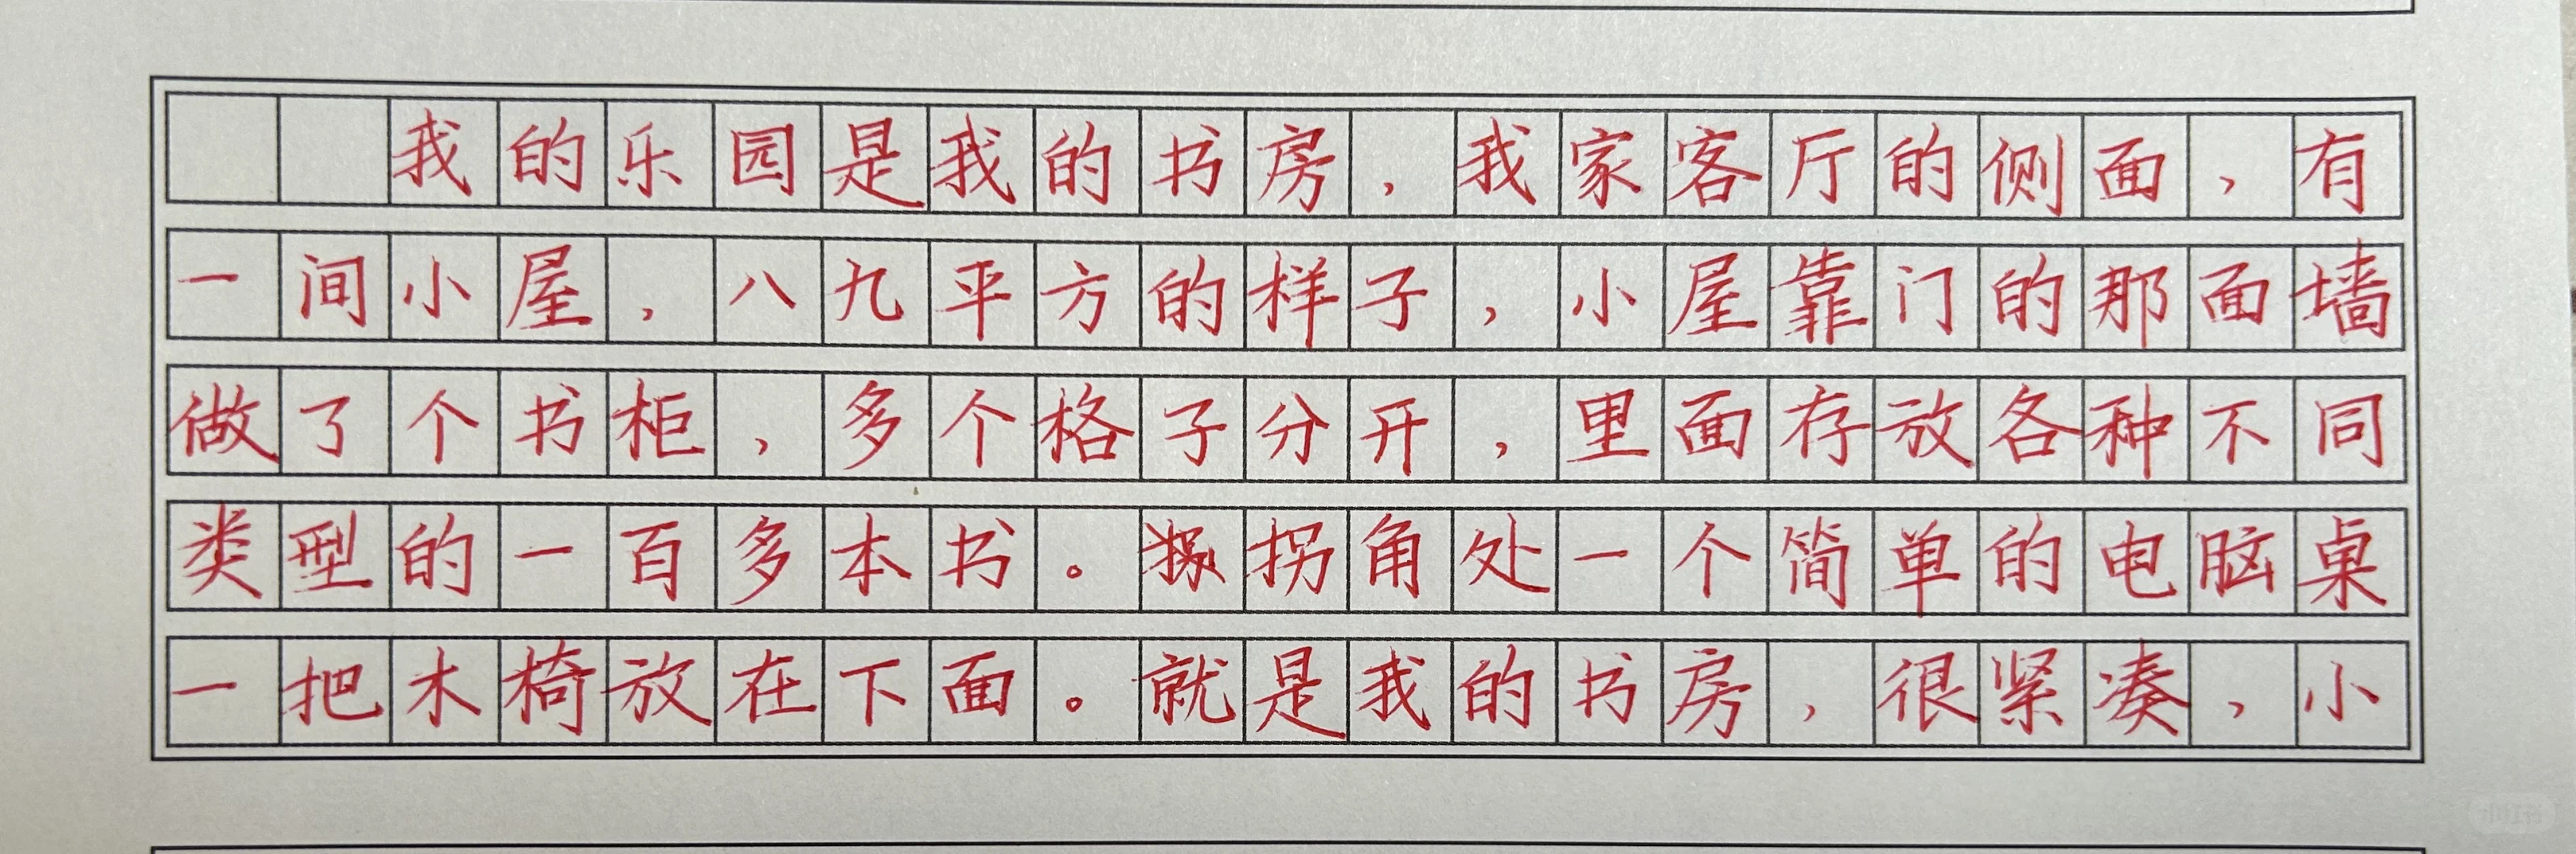 我的乐园是我的书房，我家客厅的侧面，有
一间小屋，八九平方的样子，小屋靠门的那面墙
做了个书柜，多个格子分开，里面存放各种不同
类型的一百多本书。拐角处一个简单的电脑桌
一把木椅放在下面。就是我的书房，很紧凑，小